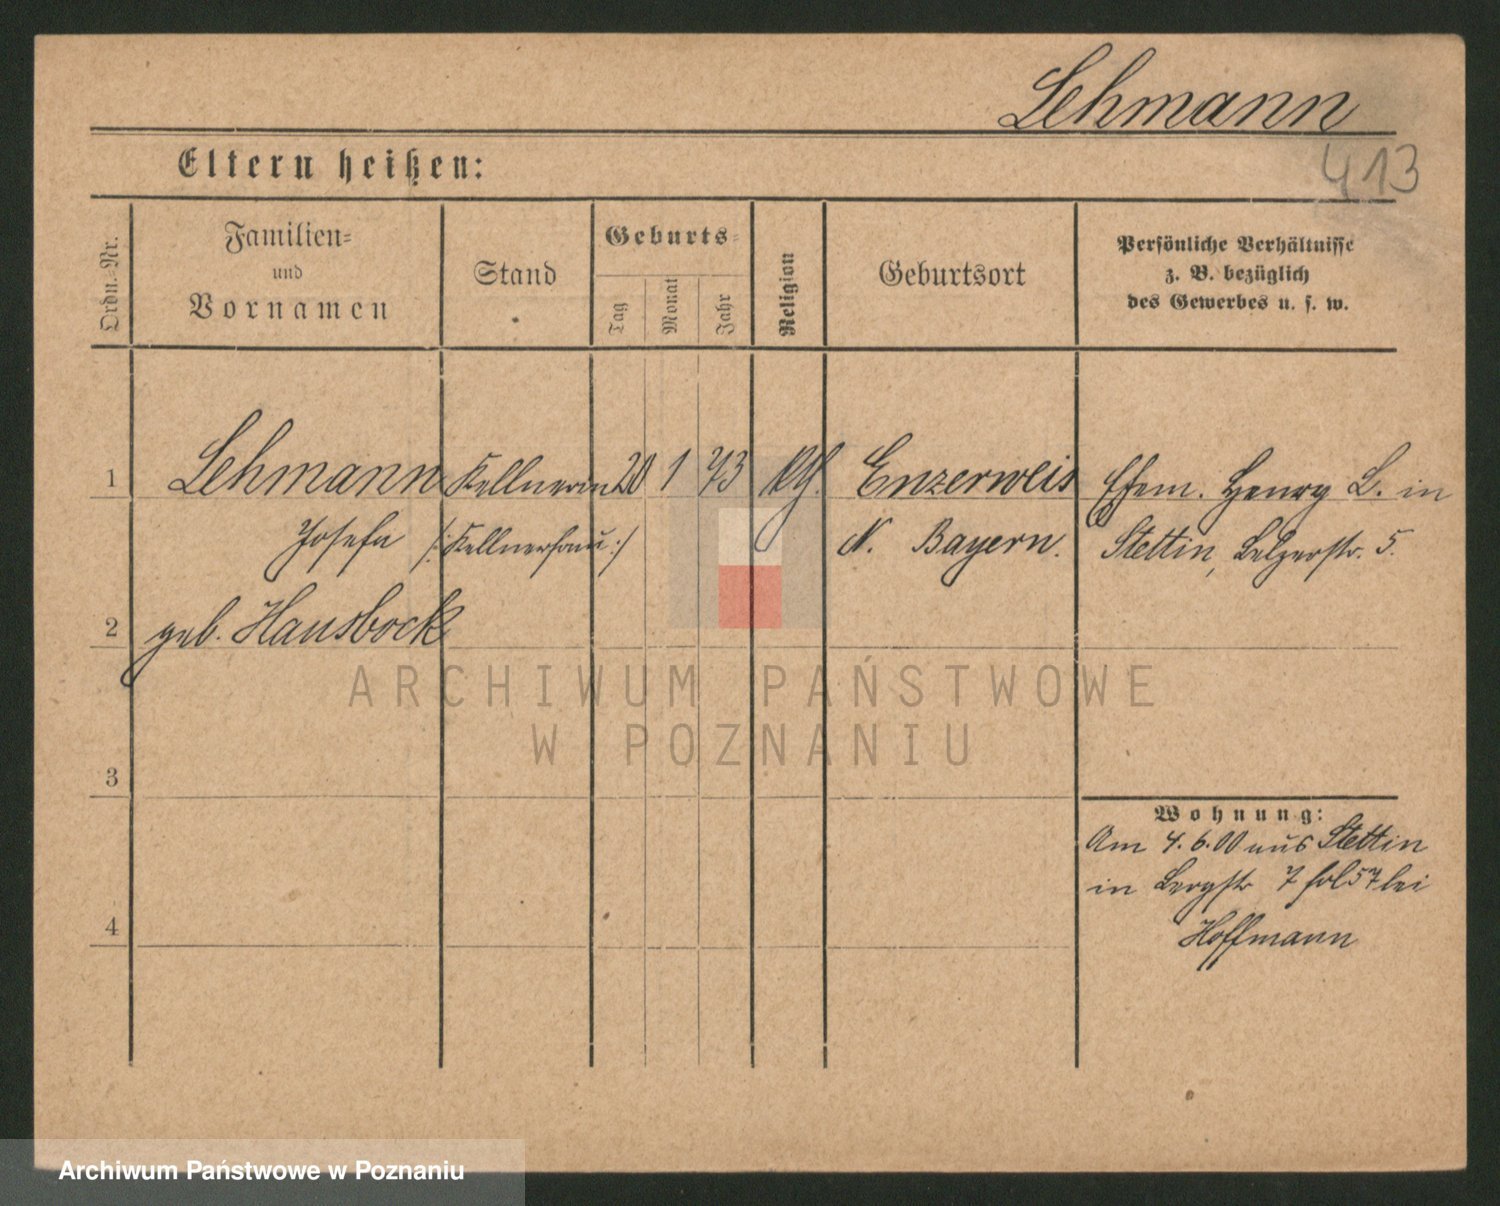 Lehmann
413
Eltern heißen:
Ordn.-Nr.
Familien-
und
Vornamen
Stand
Geburts-
Tag
Monat
Jahr
Religion
Geburtsort
Persönliche Verhältnisse
z. B. bezüglich
des Gewerbes u. s. w.
1 Lehmann Kellnerin 20 1 73 kth. Enzerweis Ehem. Henry L. in
Josefa /: Kellnersfrau :/ N. Bayern. Stettin, 5.
2 geb. Hausbock
3
4
Wohnung:
Am 4.6.00 aus Stettin
in Bergstr 7 bei
Hoffmann
ARCHIWUM PAŃSTWOWE
W POZNANIU
Archiwum Państwowe w Poznaniu